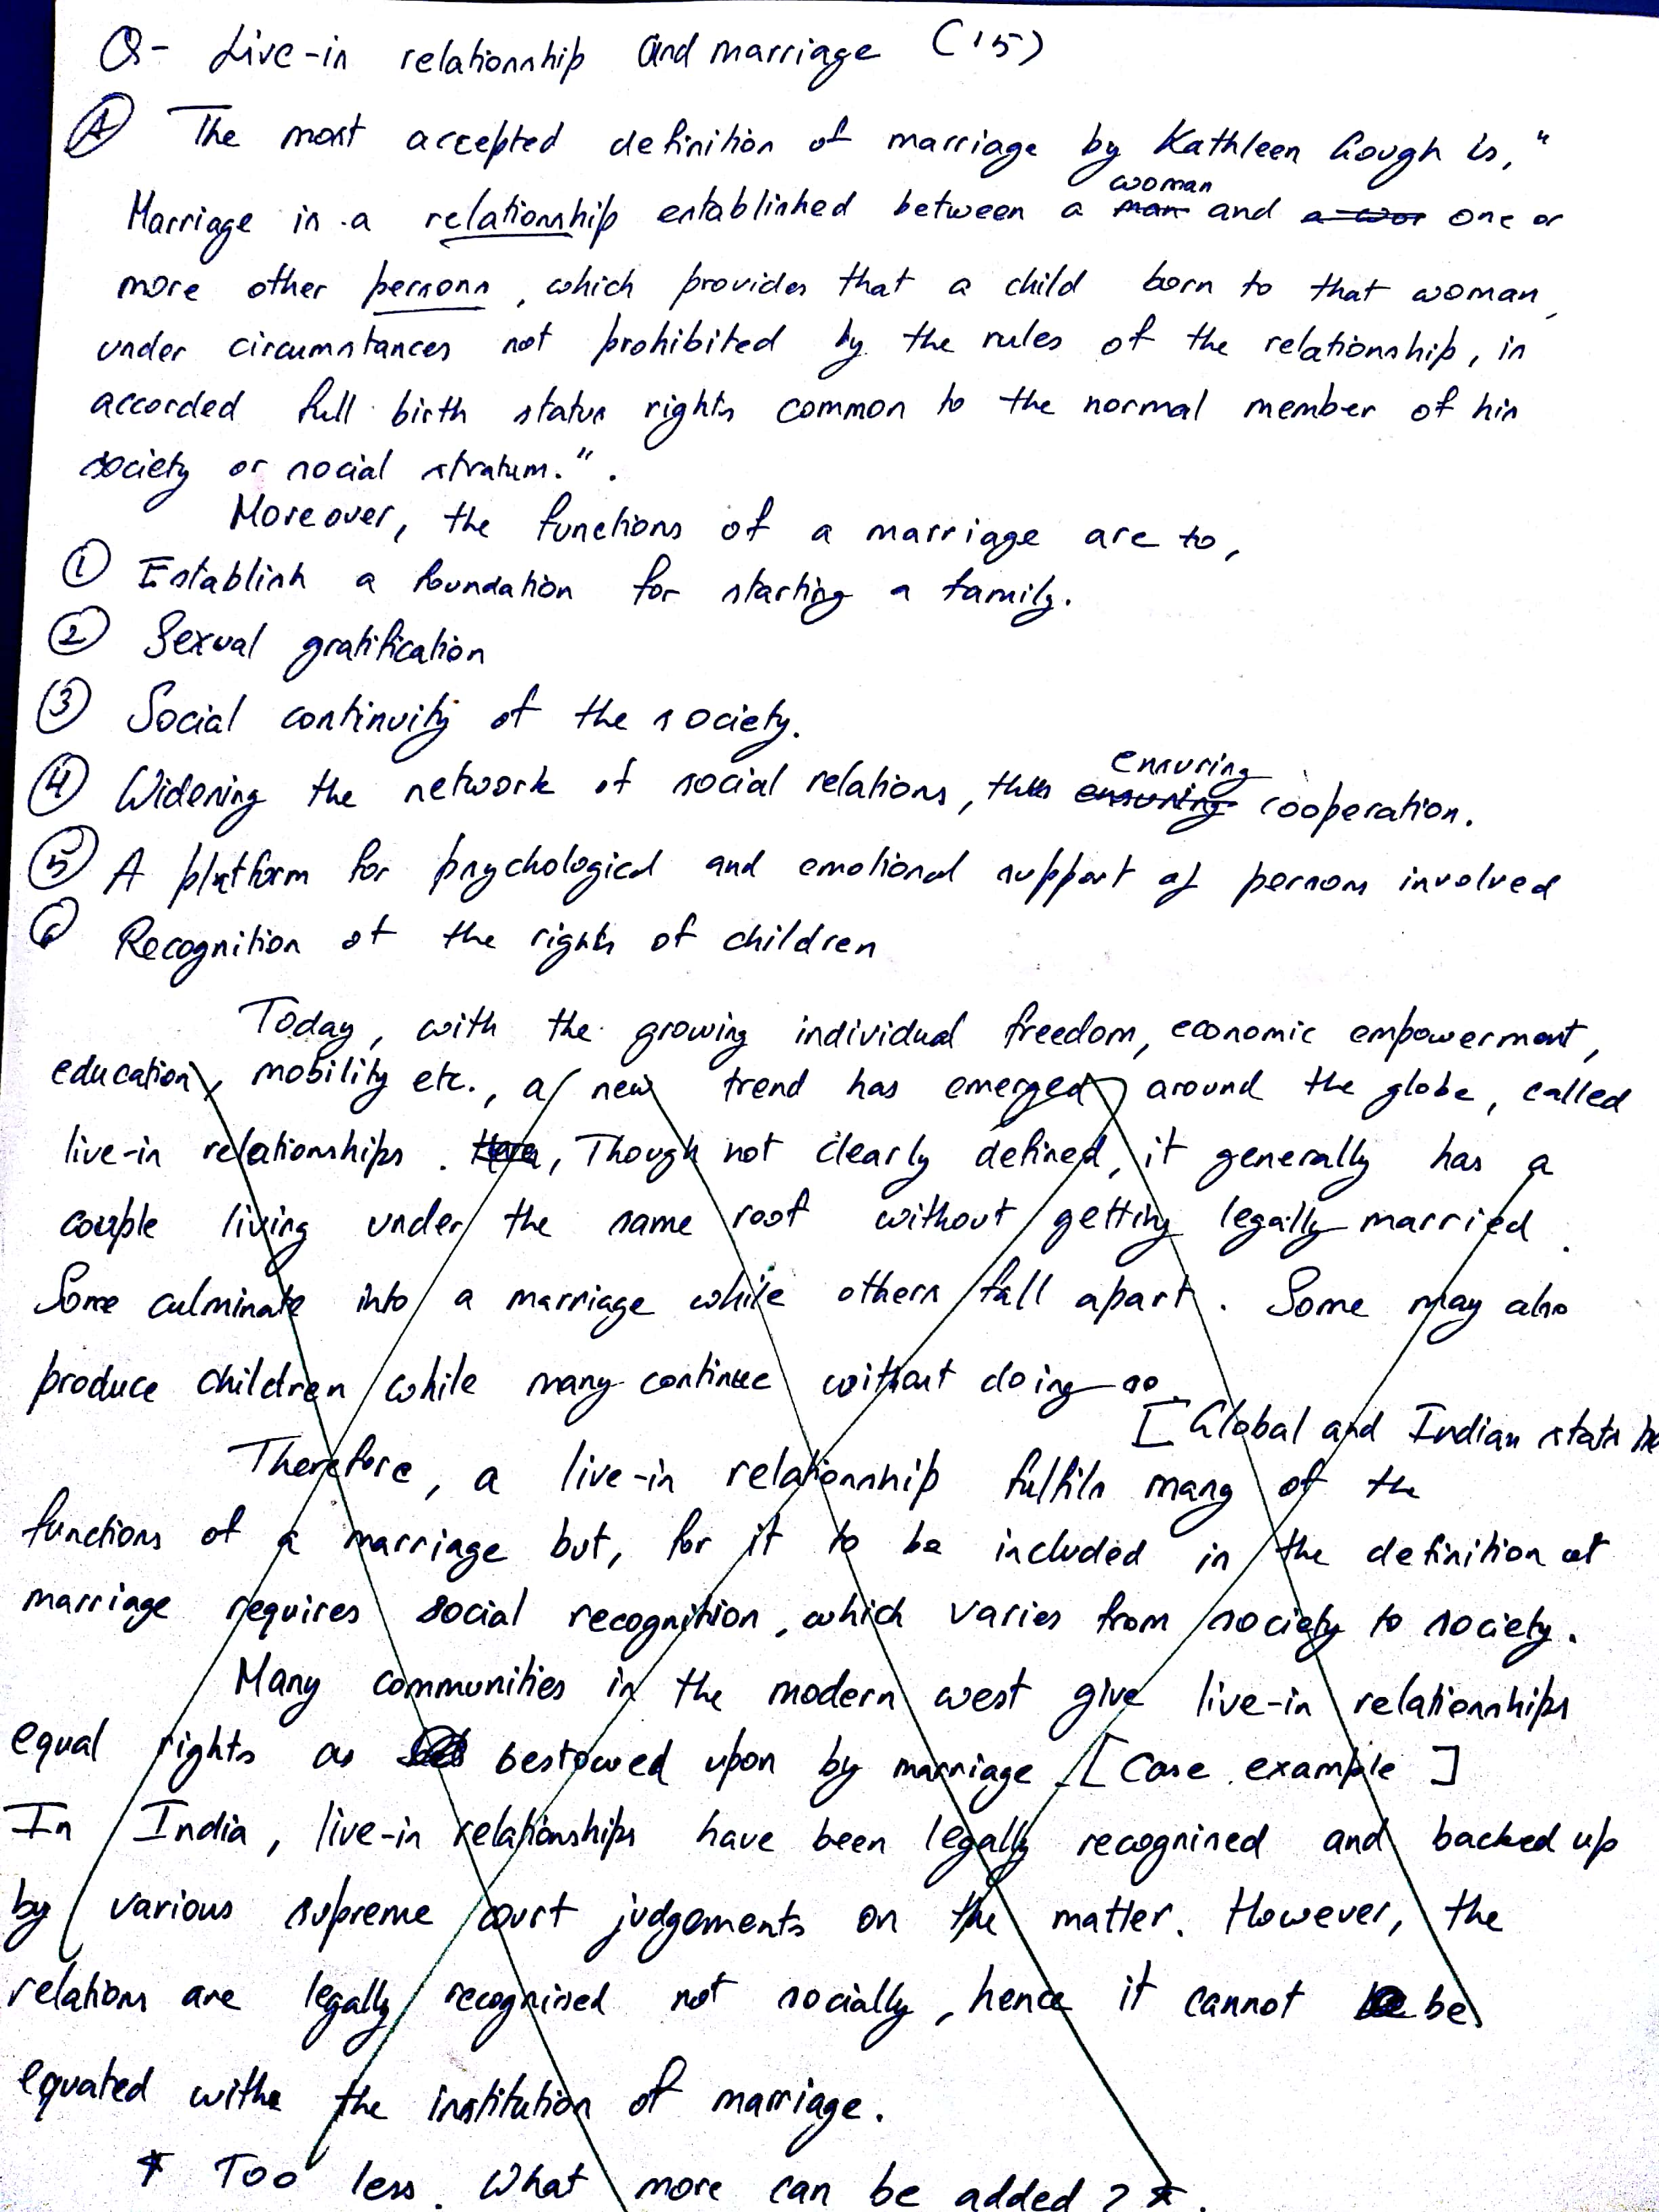 Q- Live-in relationship and marriage (15)
A The most accepted definition of marriage by Kathleen Gough is, "
woman
Marriage is a relationship established between a man and a wor one or
more other persons, which provides that a child born to that woman,
under circumstances not prohibited by the rules of the relationship, is
accorded full birth status rights common to the normal member of his
society or social stratum.".
Moreover, the functions of a marriage are to,
1 Establish a foundation for starting a family.
2 Sexual gratification
3 Social continuity of the society.
ensuring
4 Widening the network of social relations, thus ensuring cooperation.
5 A platform for psychological and emotional support of persons involved
6 Recognition of the rights of children
Today, with the growing individual freedom, economic empowerment,
education, mobility etc., a new trend has emerged around the globe, called
live-in relationships. Here, Though not clearly defined, it generally has a
couple living under the same roof without getting legally married.
Some culminate into a marriage while others fall apart. Some may also
produce children while many continue without doing so.
[Global and Indian stats
Therefore, a live-in relationship fulfils many of the
functions of a marriage but, for it to be included in the definition of
marriage requires social recognition, which varies from society to society.
Many communities in the modern west give live-in relationships
equal rights as bestowed upon by marriage. [Case example]
In India, live-in relationships have been legally recognised and backed up
by various supreme court judgements on the matter. However, the
relations are legally recognised not socially, hence it cannot be
equated withe the institution of marriage.
* Too less. What more can be added? *.